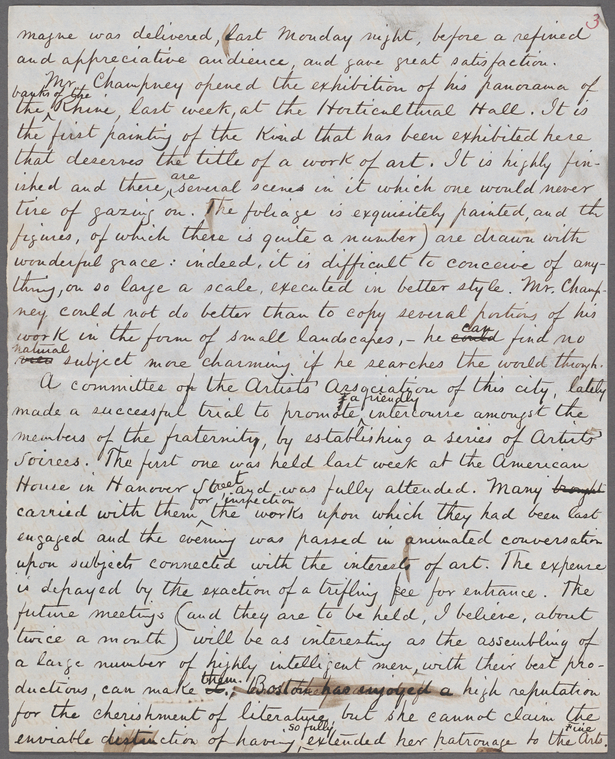 3
magne was delivered, last Monday night, before a refined
and appreciative audience, and gave great satisfaction.
Mr. Champney opened the exhibition of his panorama of
banks of the
the Rhine, last week, at the Horticultural Hall. It is
the first painting of the kind that has been exhibited here
that deserves the title of a work of art. It is highly fin-
are
ished and there several scenes in it which one would never
tire of gazing on. The foliage is exquisitely painted, and th
figures, of which there is quite a number) are drawn with
wonderful grace: indeed, it is difficult to conceive of any-
thing, on so large a scale, executed in better style. Mr. Champ-
ney could not do better than to copy several portions of his
can
work in the form of small landscapes, - he could find no
natural
subject more charming if he searches the world through.
A committee of the Artists' Association of this city, lately
a friendly
made a successful trial to promote intercourse amongst the
members of the fraternity, by establishing a series of Artists'
Soirees. The first one was held last week at the American
House in Hanover Street and was fully attended. Many brought
for inspection
carried with them the works upon which they had been last
engaged and the evening was passed in animated conversation
upon subjects connected with the interests of art. The expense
is defrayed by the exaction of a trifling fee for entrance. The
future meetings (and they are to be held, I believe, about
twice a month) will be as interesting as the assembling of
a large number of highly intelligent men, with their best pro-
them.
ductions, can make Boston has enjoyed a high reputation
for the cherishment of literature, but she cannot claim the
so fully Fine
enviable distinction of having extended her patronage to the Arts.